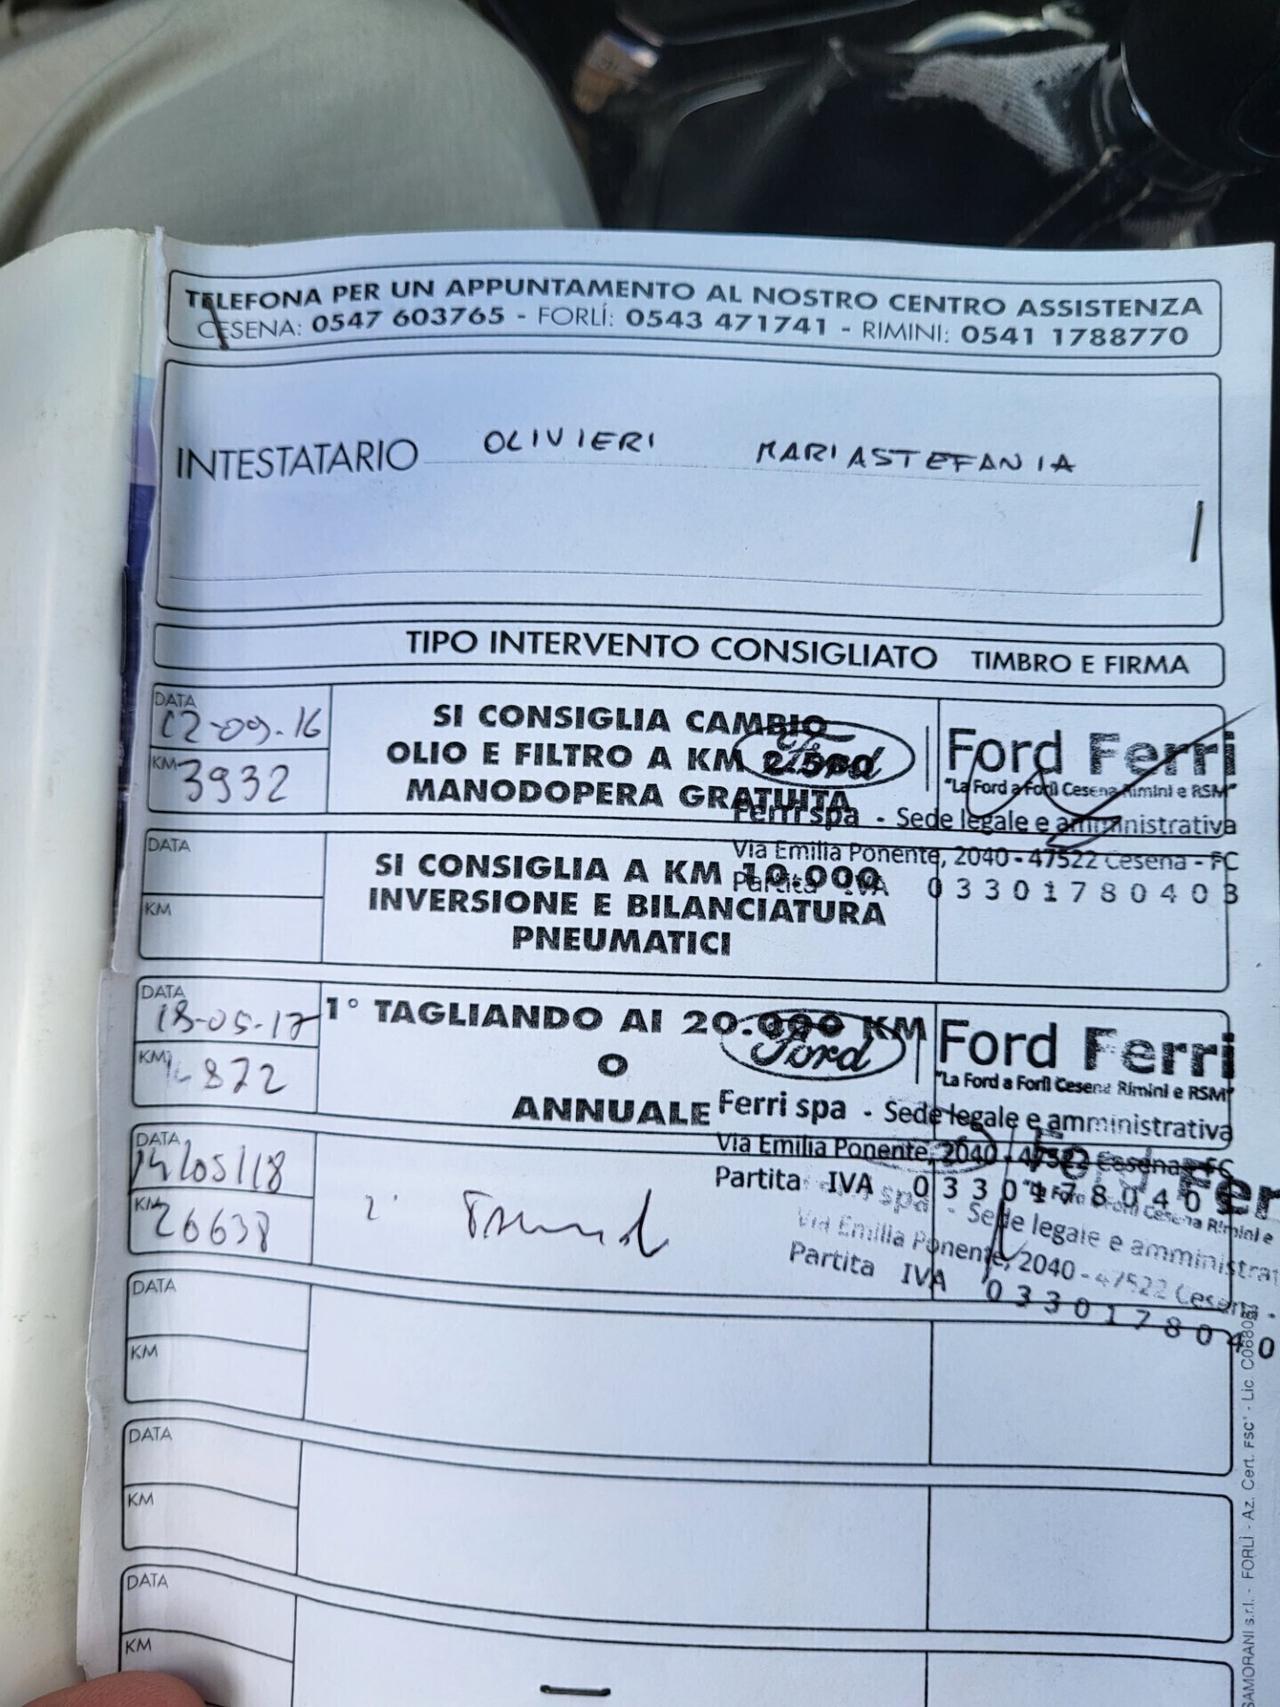 TELEFONA PER UN APPUNTAMENTO AL NOSTRO CENTRO ASSISTENZA
CESENA: 0547 603765 - FORLÌ: 0543 471741 - RIMINI: 0541 1788770
INTESTATARIO OLIVIERI MARIASTEFANIA
TIPO INTERVENTO CONSIGLIATO TIMBRO E FIRMA
DATA
12-09-16
KM
3932
SI CONSIGLIA CAMBIO
OLIO E FILTRO A KM 2.500
MANODOPERA GRATUITA
Ford
Ford Ferri
"La Ford a Forlì Cesena Rimini e RSM"
Ferri spa - Sede legale e amministrativa
Via Emilia Ponente, 2040 - 47522 Cesena - FC
Partita IVA 03301780403
DATA
KM
SI CONSIGLIA A KM 10.000
INVERSIONE E BILANCIATURA
PNEUMATICI
DATA
18-05-17
KM
872
1° TAGLIANDO AI 20.000 KM
O
ANNUALE
Ford
Ford Ferri
"La Ford a Forlì Cesena Rimini e RSM"
Ferri spa - Sede legale e amministrativa
Via Emilia Ponente, 2040 - 47522 Cesena - FC
Partita IVA 0330178040
DATA
14/05/18
KM
26638
2°
Ford Fer
Forlì Cesena Rimini e
spa - Sede legale e amministrat
Via Emilia Ponente, 2040 - 47522 Cesena -
Partita IVA 0330178040
DATA
KM
DATA
KM
DATA
KM
SAMORANI s.r.l. - FORLÌ - Az. Cert. FSC® - Lic.